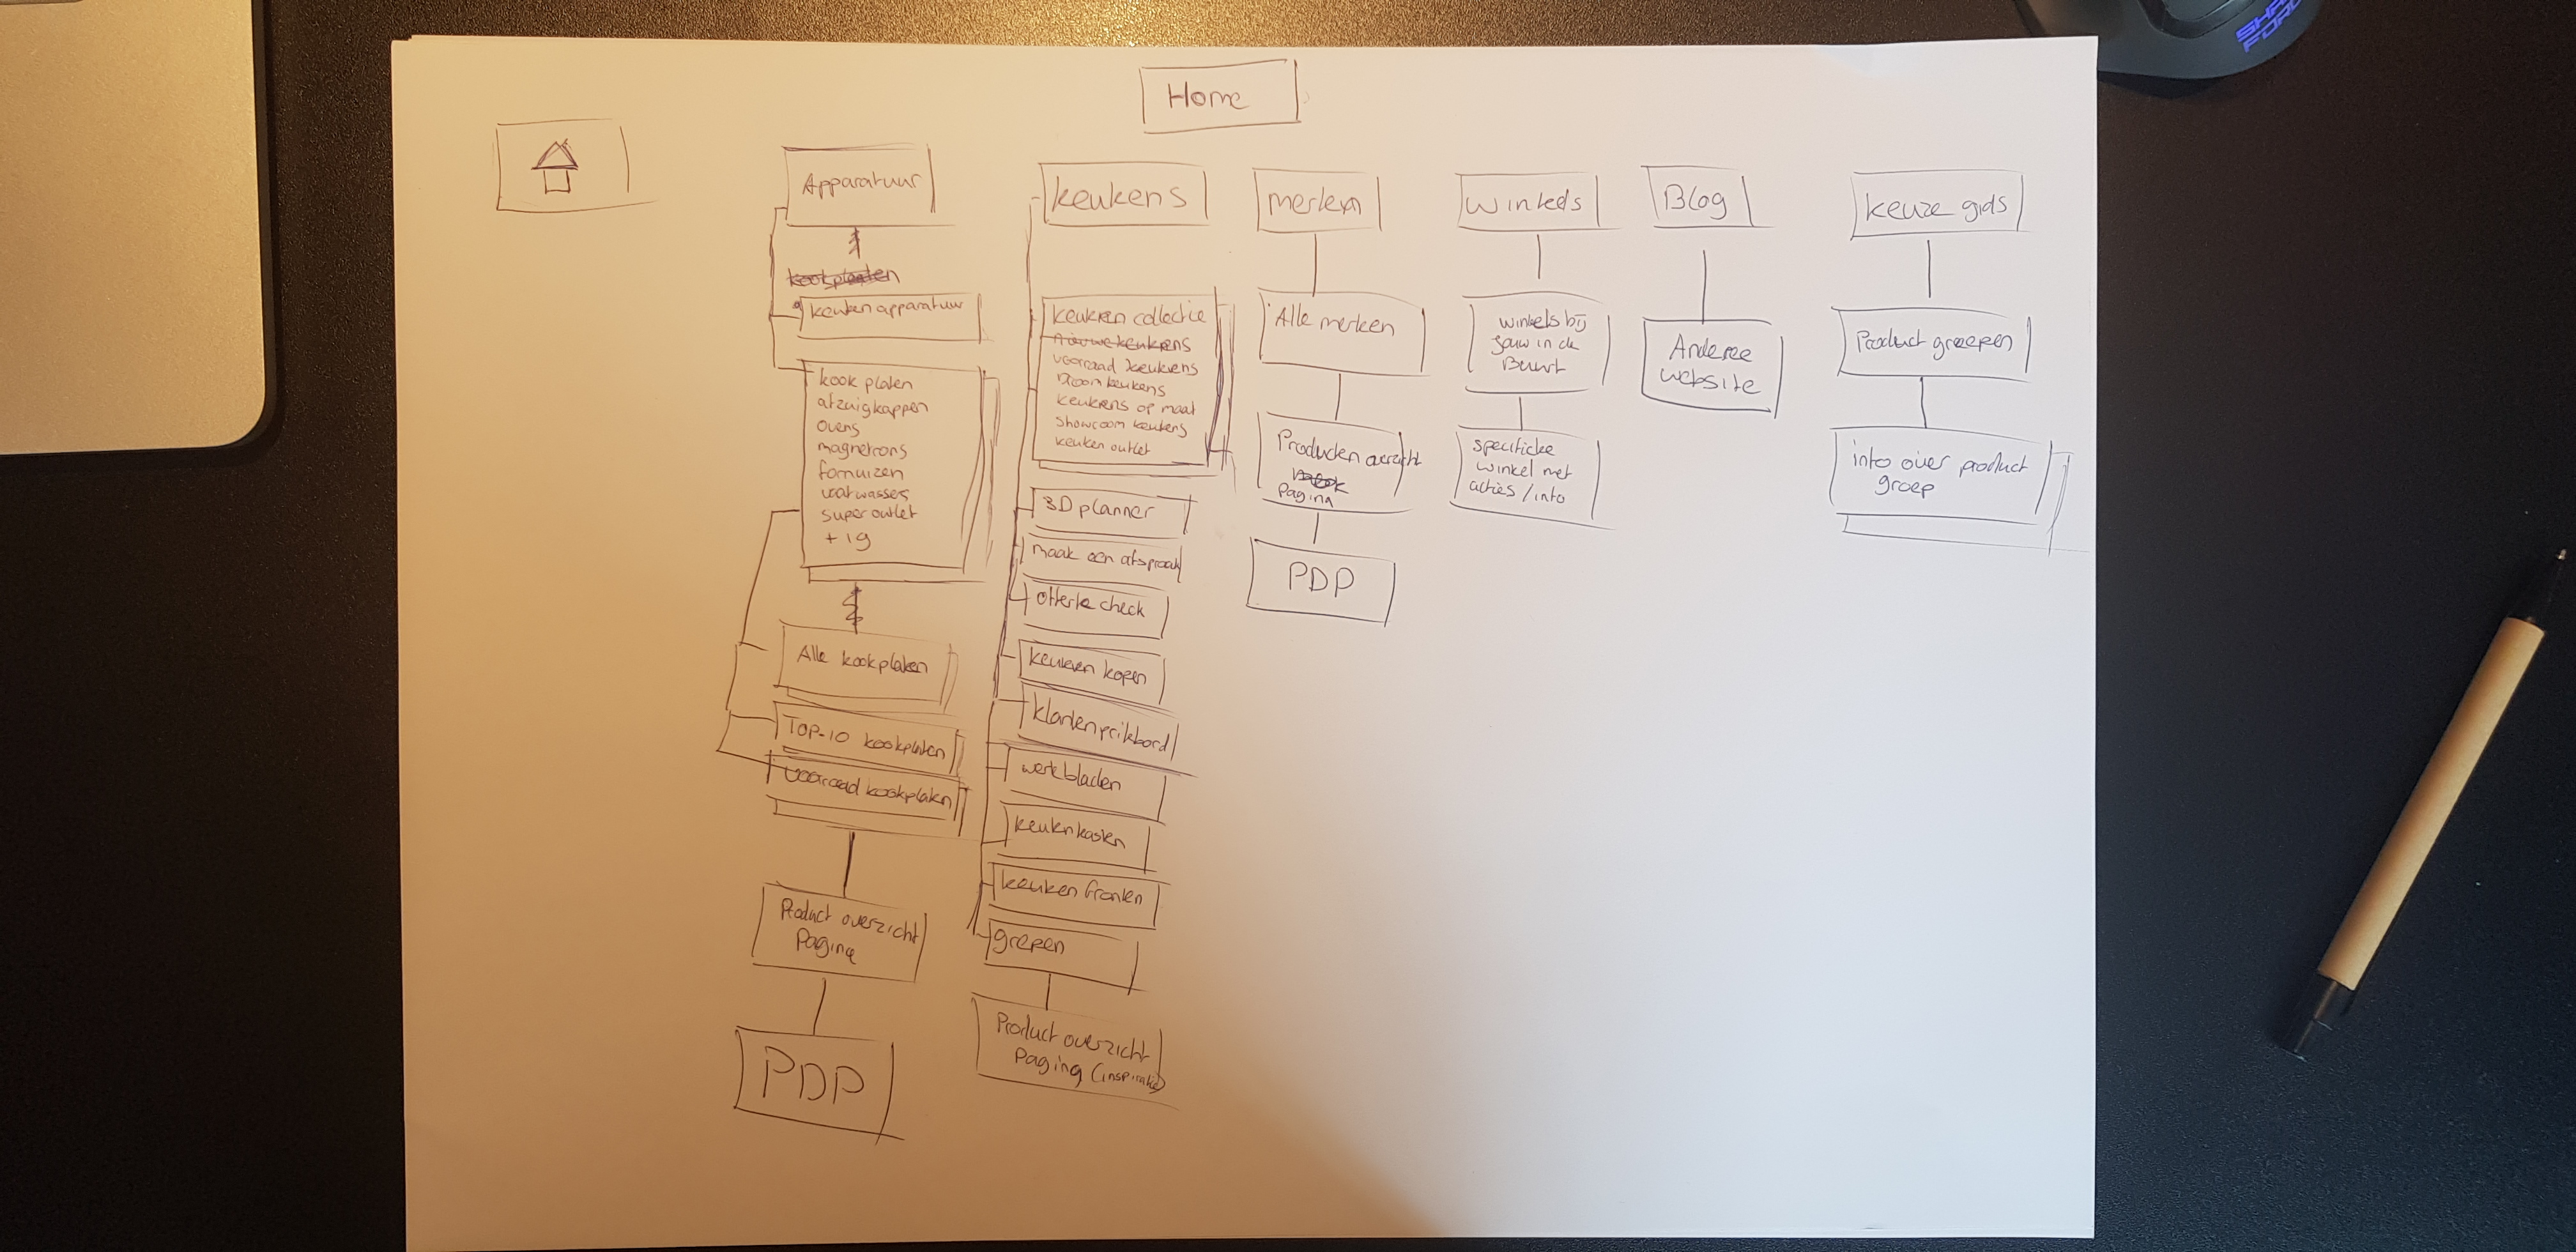 Home
Apparatuur
keukens
merken
winkels
Blog
keuze gids
kookplaten
keukenapparatuur
kookplaten
afzuigkappen
ovens
magnetrons
fornuizen
vaatwassers
super outlet
+ 19
Alle kookplaten
Top 10 kookplaten
voorraad kookplaten
Product overzicht
Pagina
PDP
keuken collectie
nieuwe keukens
voorraad keukens
Droom keukens
keukens op maat
showroom keukens
keuken outlet
3D planner
maak een afspraak
offerte check
keuken kopen
klanten prikbord
werkbladen
keuken kasten
keuken fronten
grepen
Product overzicht
Pagina
Alle merken
Producten overzicht
Pagina
PDP
winkels bij
jouw in de
Buurt
specifieke
winkel met
acties/info
Andere
website
Product groepen
info over product
groep
SHA
FOR